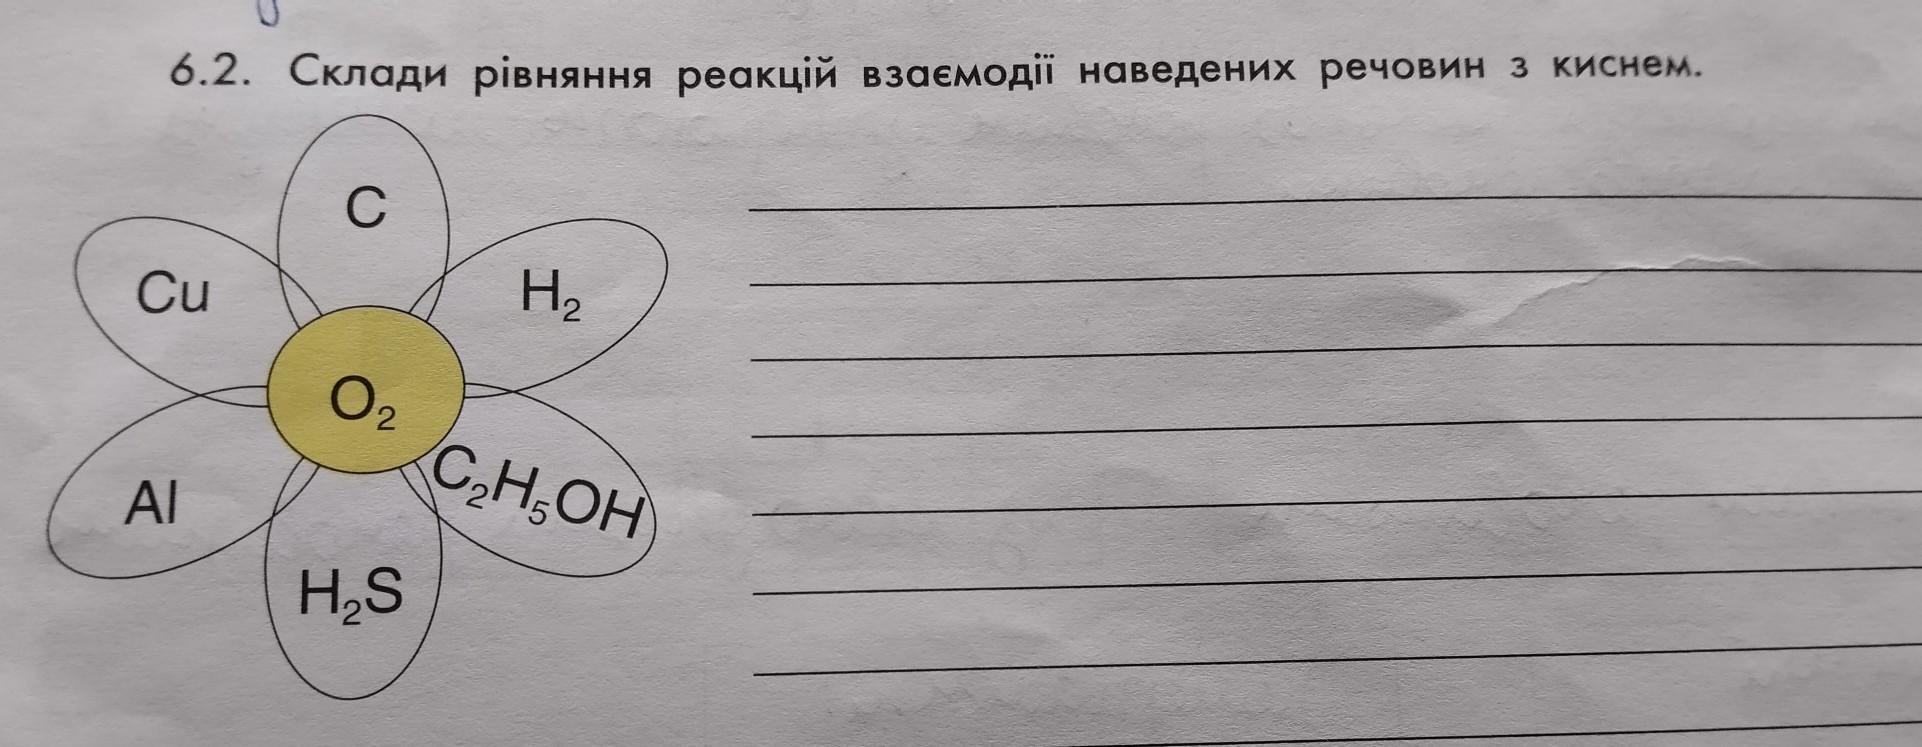 6.2. Склади рівняння реакцій взаємодії наведених речовин з киснем.
C
Cu
H₂
O₂
Al
C₂H₅OH
H₂S